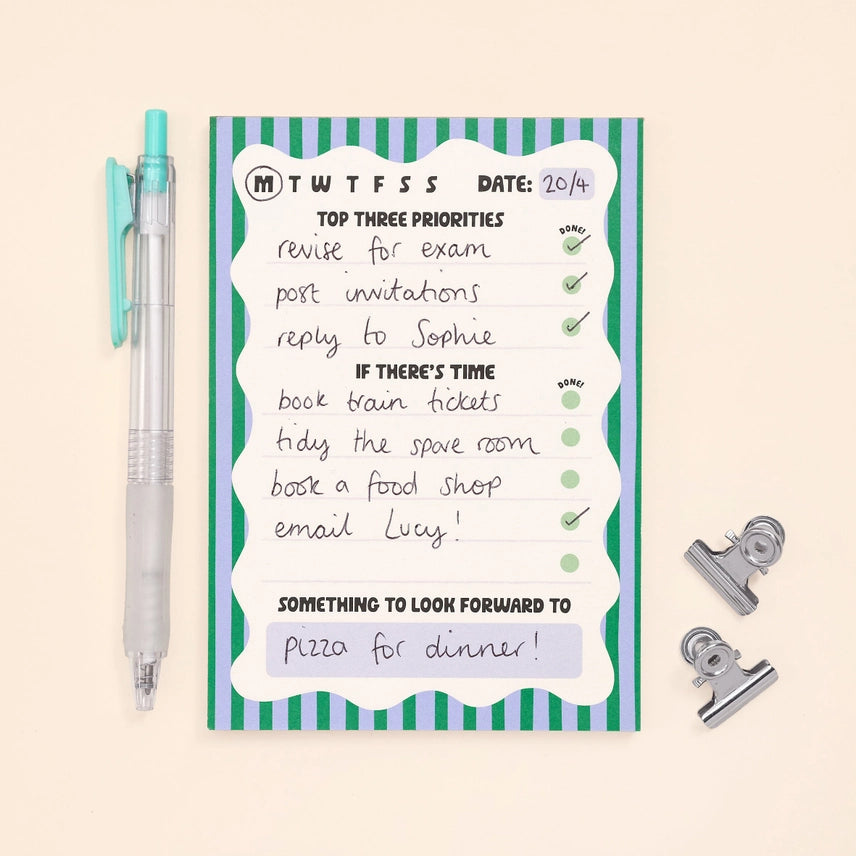 M T W T F S S DATE: 20/4
TOP THREE PRIORITIES
DONE!
revise for exam
post invitations
reply to Sophie
IF THERE'S TIME
DONE!
book train tickets
tidy the spare room
book a food shop
email Lucy!
SOMETHING TO LOOK FORWARD TO
pizza for dinner!